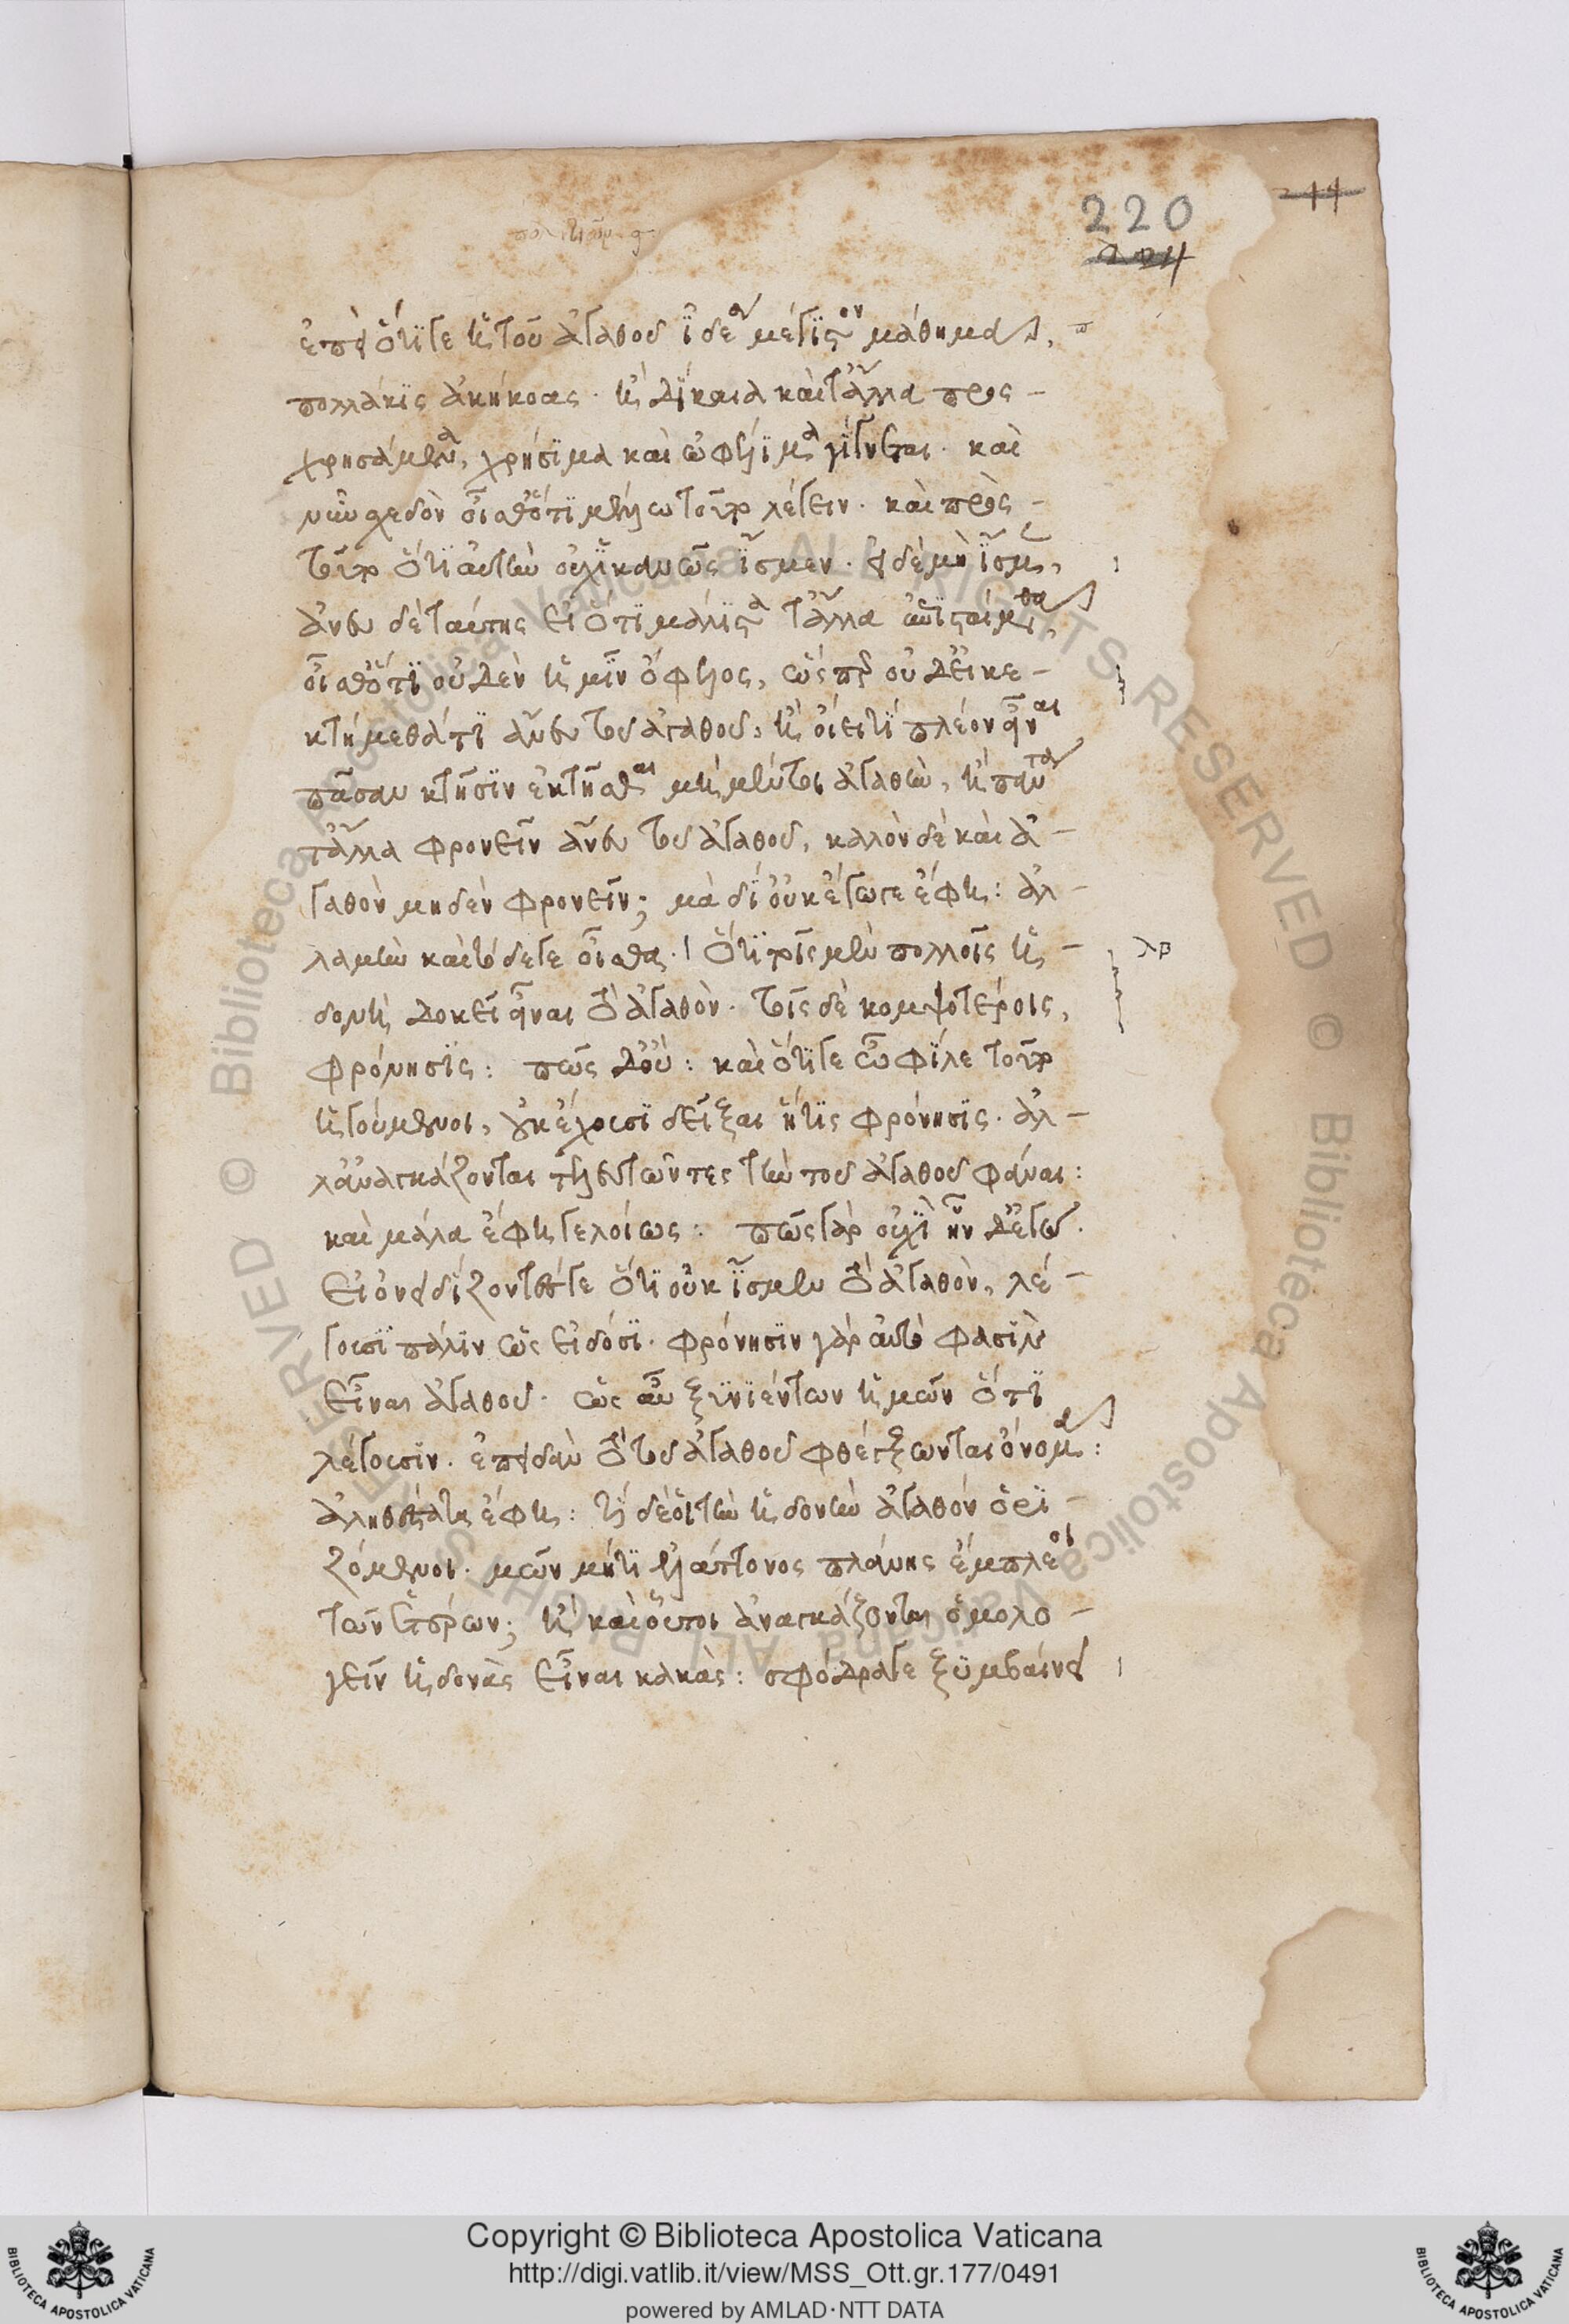 πολιτειῶν ς
220
221
211
ἐπεὶ ὅτι γε ἡ τοῦ ἀγαθοῦ ἰδέα μέγιστον μάθημα,
πολλάκις ἀκήκοας· ᾗ δίκαια καὶ τἄλλα προσ-
χρησάμενα, χρήσιμα καὶ ὠφέλιμα γίγνεται· καὶ
νῦν σχεδὸν οἶσθ' ὅτι μέλλω τοῦτο λέγειν· καὶ πρὸς
τούτω ὅτι αὐτὴν οὐχ ἱκανῶς ἴσμεν· εἰ δὲ μὴ ἴσμεν,
ἄνευ δὲ ταύτης εἰ ὅτι μάλιστα τἄλλα ἐπισταίμεθα,
οἶσθ' ὅτι οὐδὲν ἡμῖν ὄφελος, ὥσπερ οὐδ' εἰ κε-
κτήμεθά τι ἄνευ τοῦ ἀγαθοῦ, ἢ οἴει τι πλέον εἶναι
πᾶσαν κτῆσιν ἐκτῆσθαι μὴ μέντοι ἀγαθὴν, ἢ πάντα
τἄλλα φρονεῖν ἄνευ τοῦ ἀγαθοῦ, καλὸν δὲ καὶ ἀ-
γαθὸν μηδὲν φρονεῖν; μὰ δί' οὐκ ἔγωγε ἔφη: ἀλ-
λὰ μὴν καὶ τόδε γε οἶσθα· ὅτι τοῖς μὲν πολλοῖς ἡ-
δονὴ δοκεῖ εἶναι τὸ ἀγαθὸν· τοῖς δὲ κομψοτέροις,
φρόνησις: πῶς δ' οὔ: καὶ ὅτι γε ὦ φίλε τοῦτο
ἡγούμενοι, οὐκ ἔχουσι δεῖξαι ἥτις φρόνησις· ἀλ-
λ' ἀναγκάζονται τελευτῶντες τὴν τοῦ ἀγαθοῦ φάναι:
καὶ μάλα ἔφη γελοίως: πῶς γὰρ οὐχὶ ἦν δ' ἐγὼ.
εἰ ὀνειδίζοντές γε ὅτι οὐκ ἴσμεν τὸ ἀγαθὸν, λέ-
γουσι πάλιν ὡς εἰδόσι· φρόνησιν γὰρ αὐτό φασιν
εἶναι ἀγαθοῦ· ὡς αὖ ξυνιέντων ἡμῶν ὅτι
λέγουσιν· ἐπειδὰν τὸ τοῦ ἀγαθοῦ φθέγξωνται ὄνομα:
ἀληθέστατα ἔφη: τί δὲ οἱ τὴν ἡδονὴν ἀγαθὸν ὁρι-
ζόμενοι· μῶν μή τι ἐλάττονος πλάνης ἔμπλεοι
τῶν ἑτέρων; ἢ καὶ οὗτοι ἀναγκάζονται ὁμολο-
γεῖν ἡδονὰς εἶναι κακὰς: σφόδρα γε ξυμβαίνει
Copyright © Biblioteca Apostolica Vaticana
http://digi.vatlib.it/view/MSS_Ott.gr.177/0491
powered by AMLAD·NTT DATA